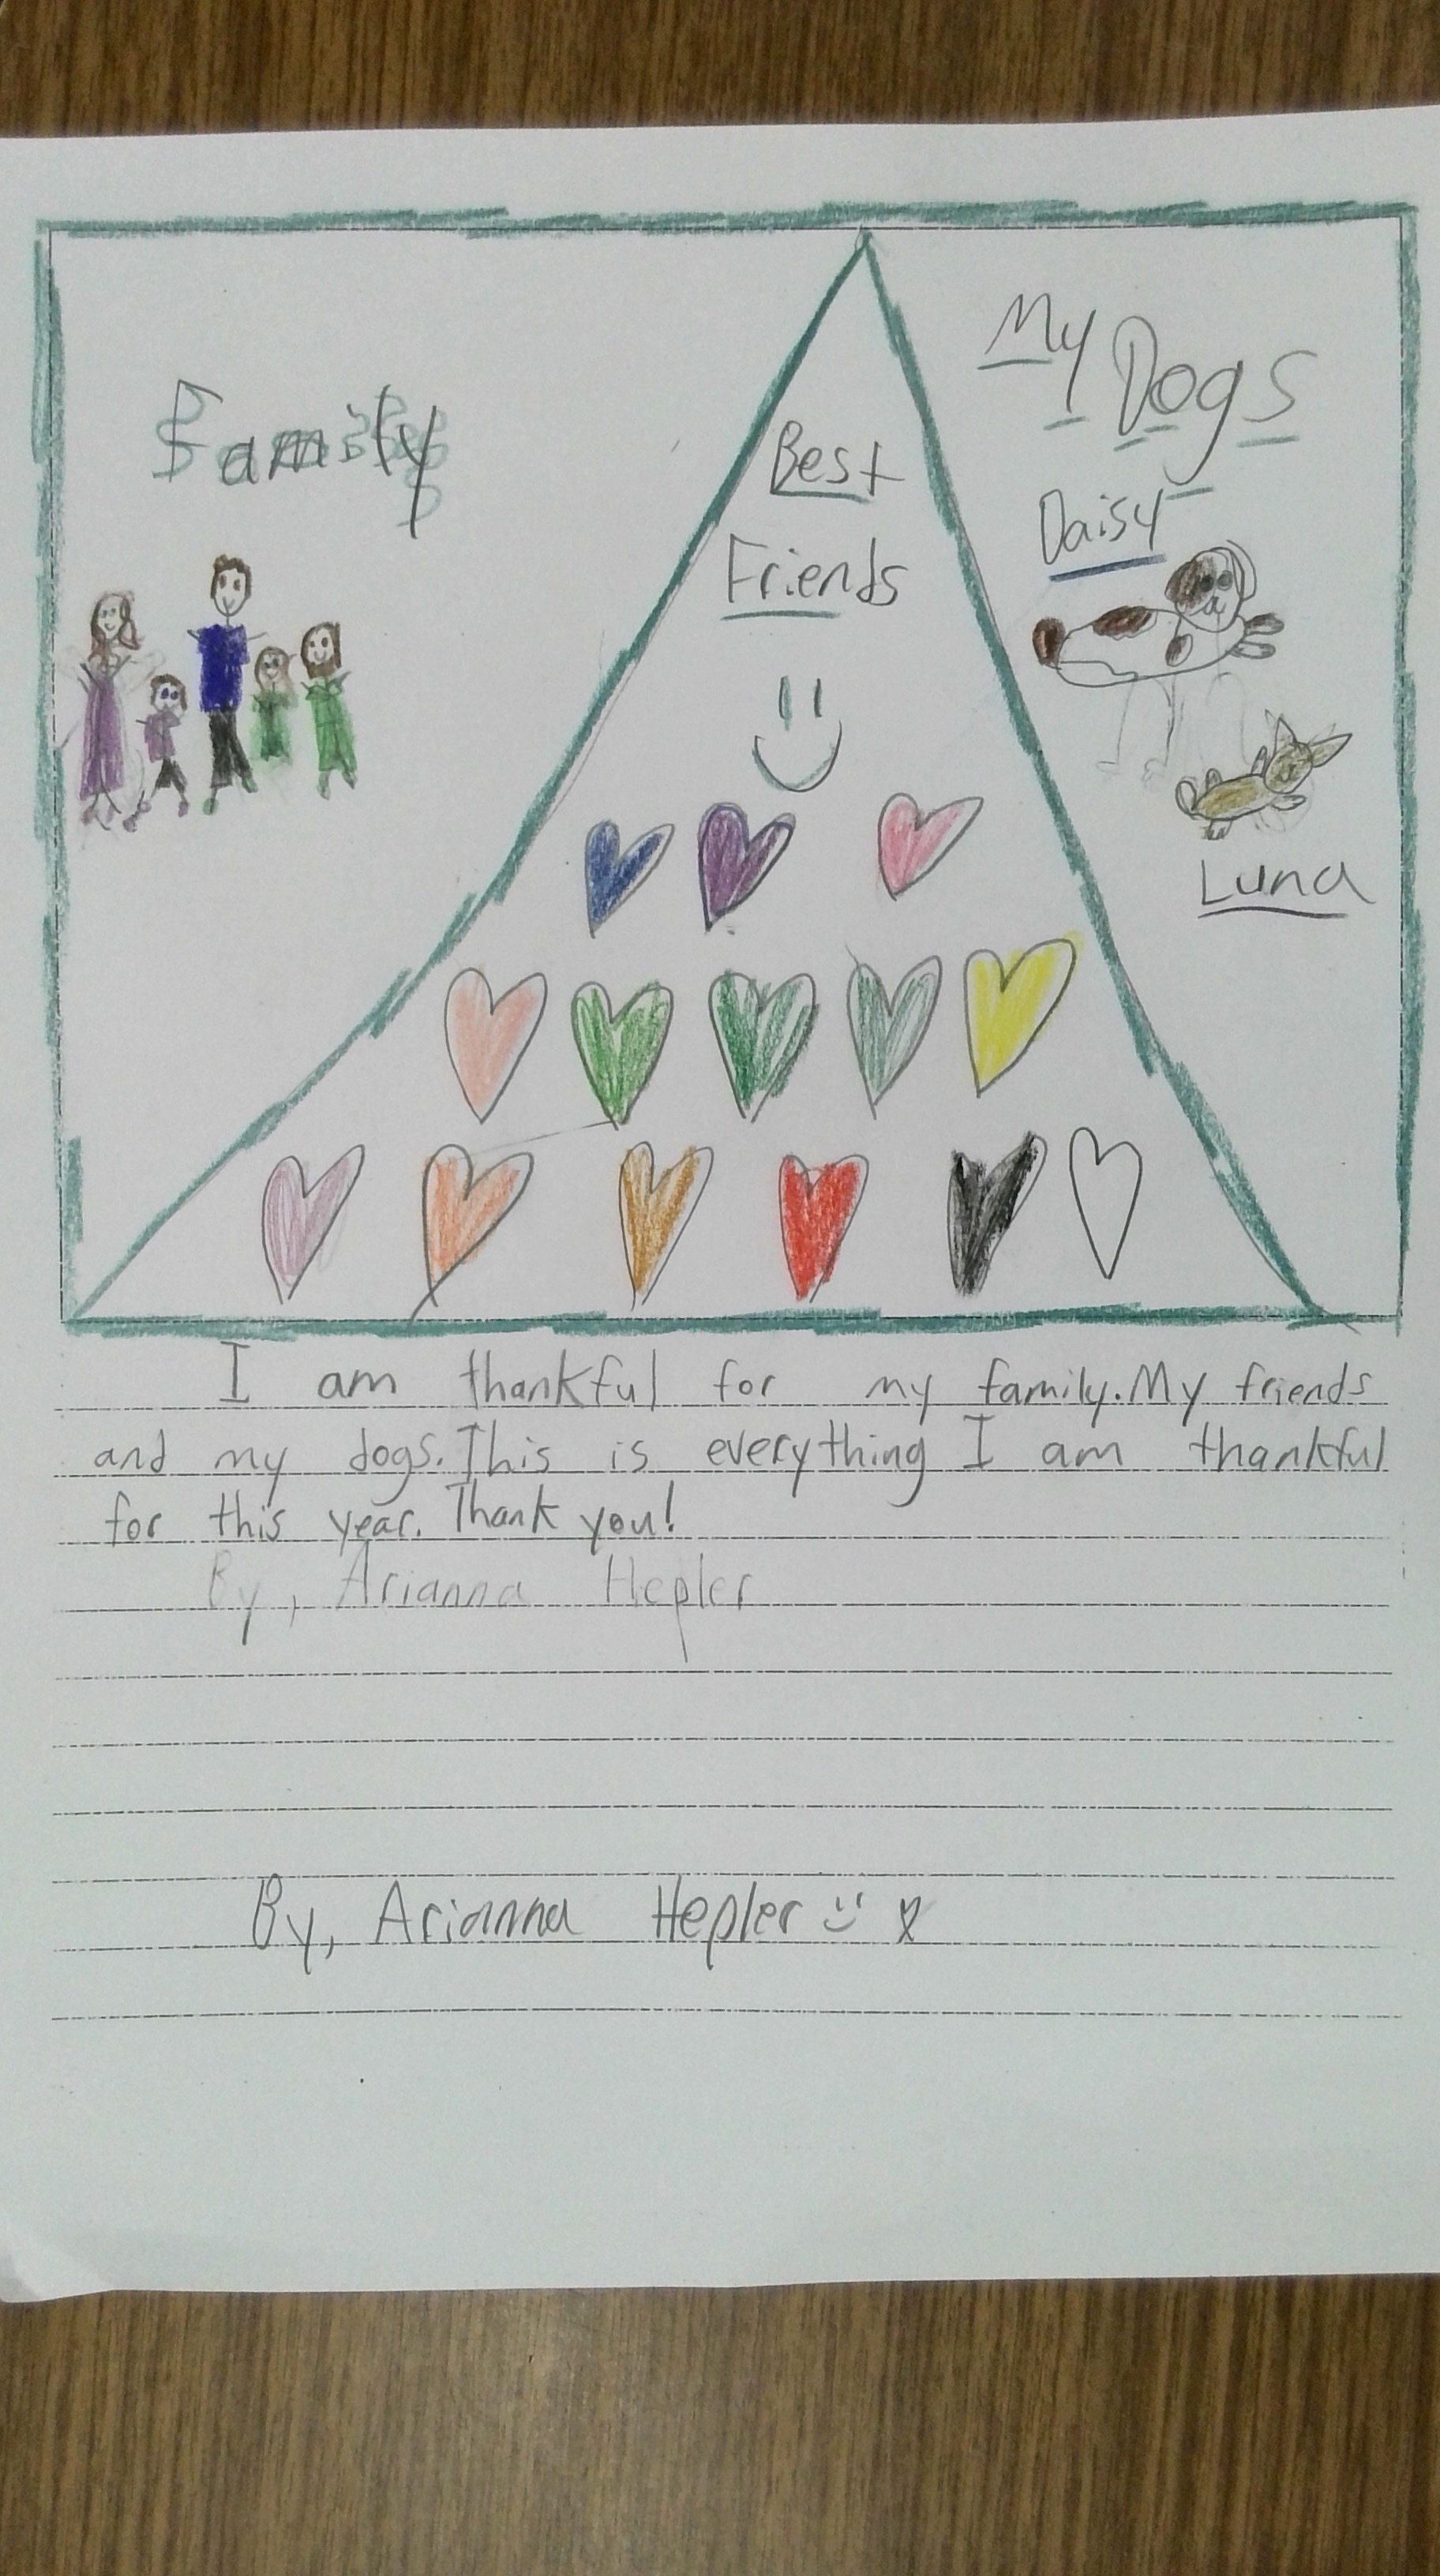 Family
Best
Friends
My Dogs
Daisy
Luna
I am thankful for my family. My friends
and my dogs. This is everything I am thankful
for this year. Thank you!
By, Arianna Hepler
By, Arianna Hepler